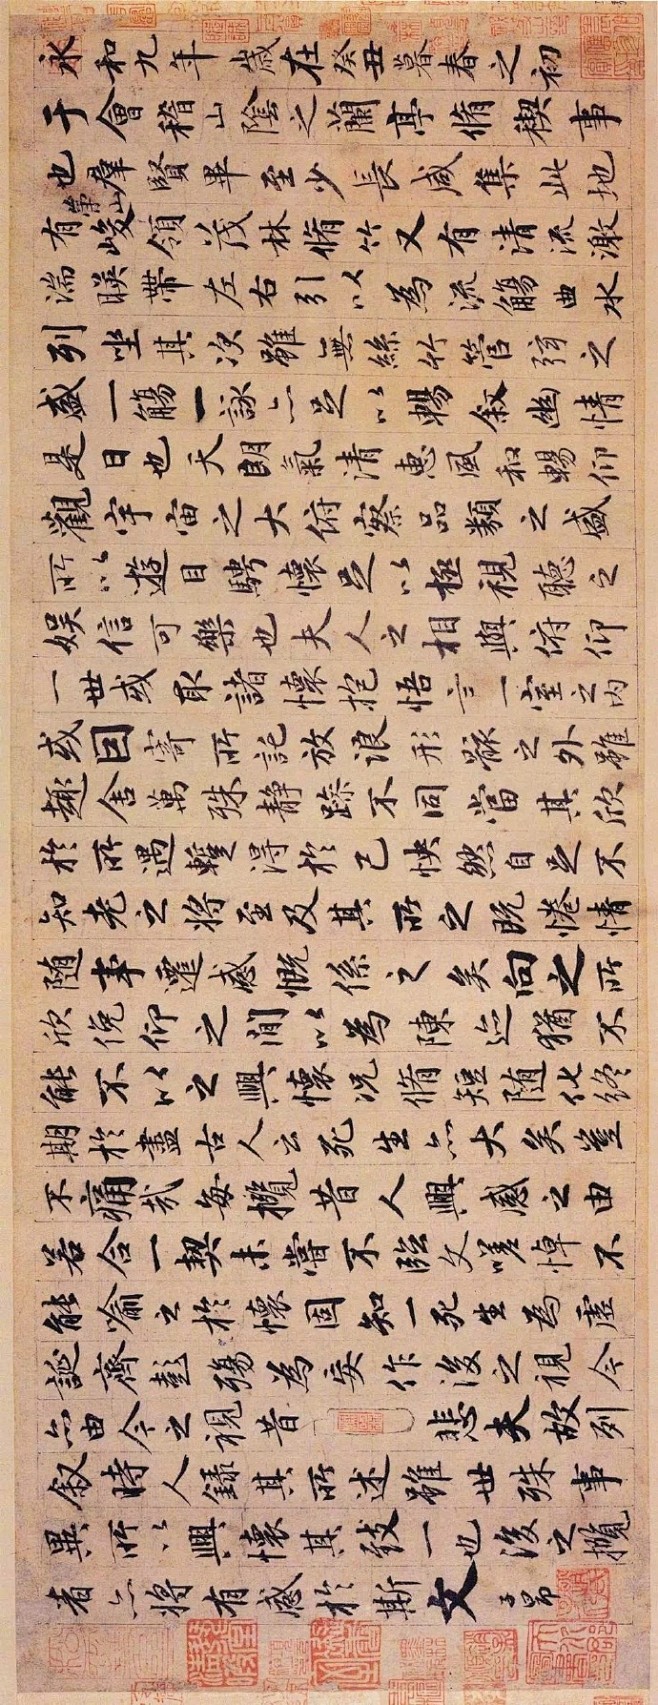 永和九年歲在癸丑暮春之初
于會稽山陰之蘭亭脩稧事
也羣賢畢至少長咸集此地
有崇山峻領茂林脩竹又有清流激
湍暎帶左右引以為流觴曲水
列坐其次雖無絲竹管弦之
盛一觴一詠亦足以暢敘幽情
是日也天朗氣清惠風和暢仰
觀宇宙之大俯察品類之盛
所以遊目騁懷足以極視聽之
娛信可樂也夫人之相與俯仰
一世或取諸懷抱悟言一室之內
或因寄所託放浪形骸之外雖
趣舍萬殊靜躁不同當其欣
於所遇蹔得於己怏然自足不
知老之將至及其所之既惓情
随事遷感慨係之矣向之所
欣俛仰之間以為陳迹猶不
能不以之興懷況脩短随化終
期於盡古人云死生亦大矣豈
不痛哉每攬昔人興感之由
若合一契未嘗不臨文嗟悼不
能喻之於懷固知一死生為虛
誕齊彭殤為妄作後之視今
亦由今之視昔悲夫故列
敘時人錄其所述雖世殊事
異所以興懷其致一也後之攬
者亦將有感於斯文 子昂